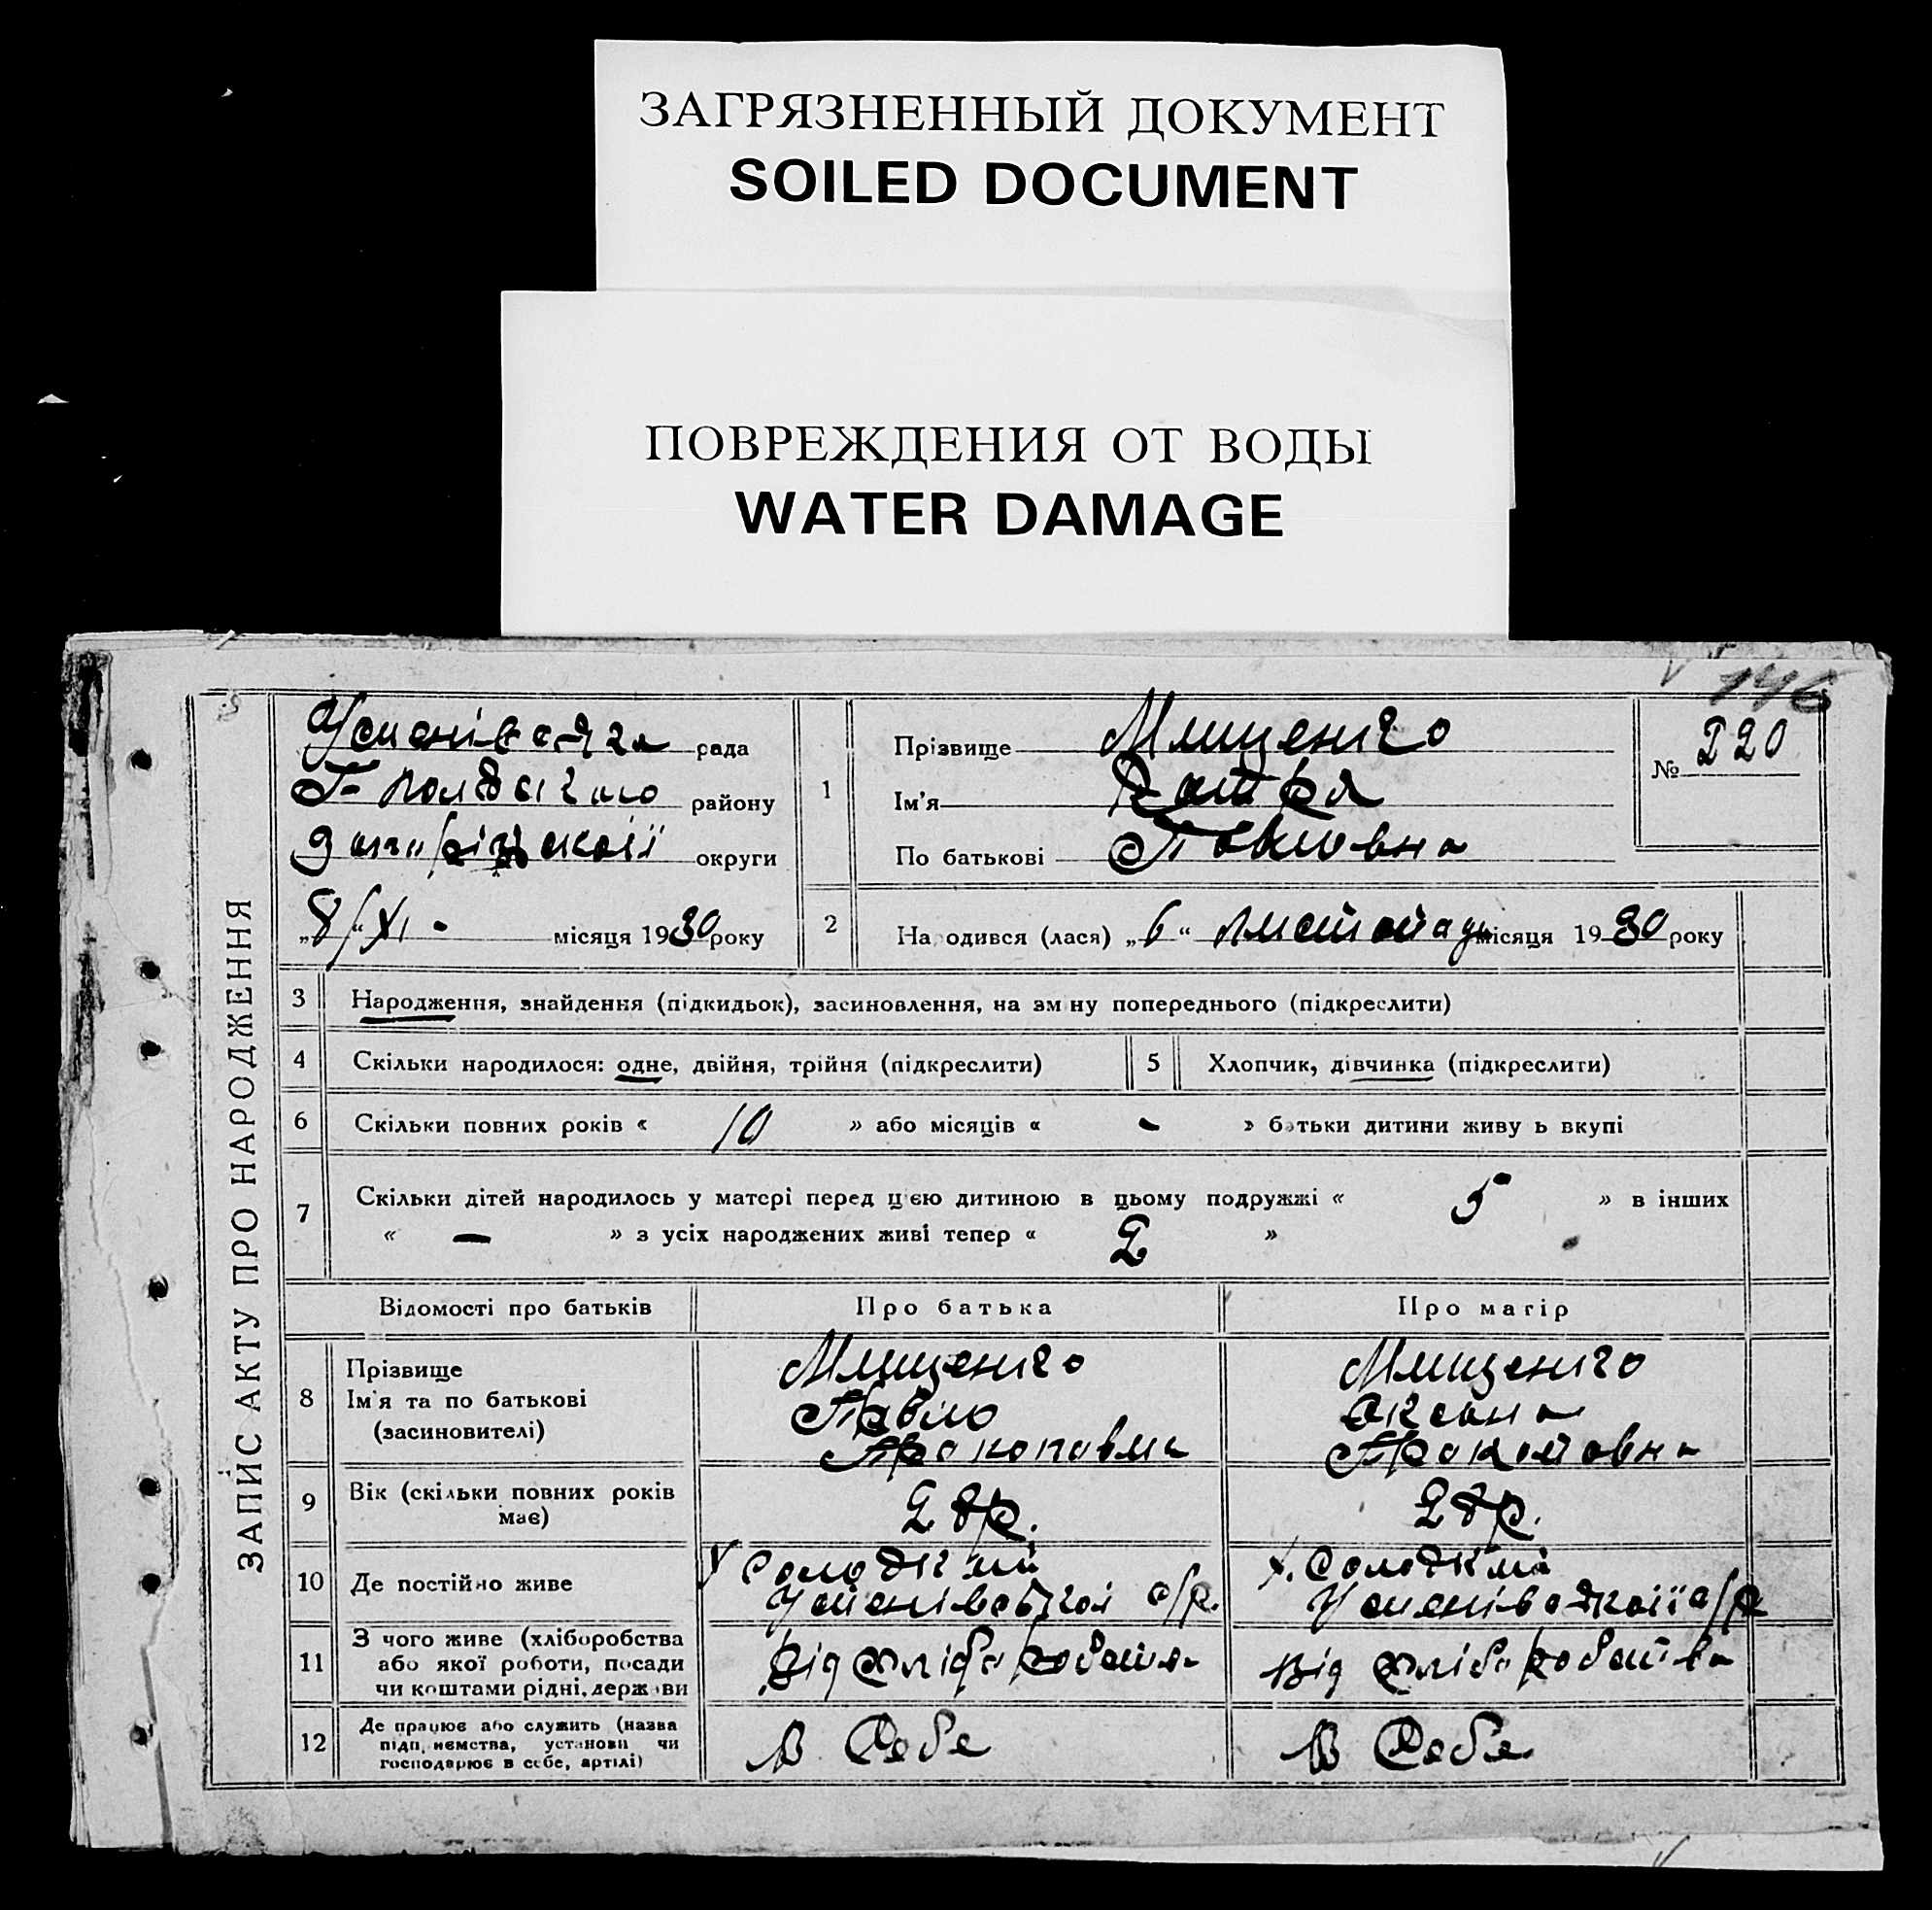 ЗАГРЯЗНЕННЫЙ ДОКУМЕНТ
SOILED DOCUMENT
ПОВРЕЖДЕНИЯ ОТ ВОДЫ
WATER DAMAGE
146
ЗАПИС АКТУ ПРО НАРОДЖЕННЯ
Успенівська рада
району
округи
„8“ XI - місяця 1930 року
1
Прізвище Мищенко
Ім'я
По батькові Павловна
№ 220
2
Народився (лася) „6“ листопада місяця 1930 року
3 Народження, знайдення (підкидьок), засиновлення, на зміну попереднього (підкреслити)
4 Скільки народилося: одне, двійня, трійня (підкреслити)
5 Хлопчик, дівчинка (підкреслити)
6 Скільки повних років « 10 » або місяців « - » батьки дитини живуть вкупі
7 Скільки дітей народилось у матері перед цією дитиною в цьому подружжі « 5 » в інших
« — » з усіх народжених живі тепер « 2 »
Відомості про батьків Про батька Про матір
8 Прізвище
Ім'я та по батькові
(засиновителі)
Мищенко
Павло
Прокопович
Мищенко
Оксана
Прокоповна
9 Вік (скільки повних років
має)
28 р.
28 р.
10 Де постійно живе
х. Солодкий
Успенівської с/р.
х. Солодкий
Успенівської с/р
11 З чого живе (хліборобства
або якої роботи, посади
чи коштами рідні, держави
Від хліборобства
Від хліборобства
12 Де працює або служить (назва
підприємства, установи чи
господарює в себе, артілі)
В себе
В себе